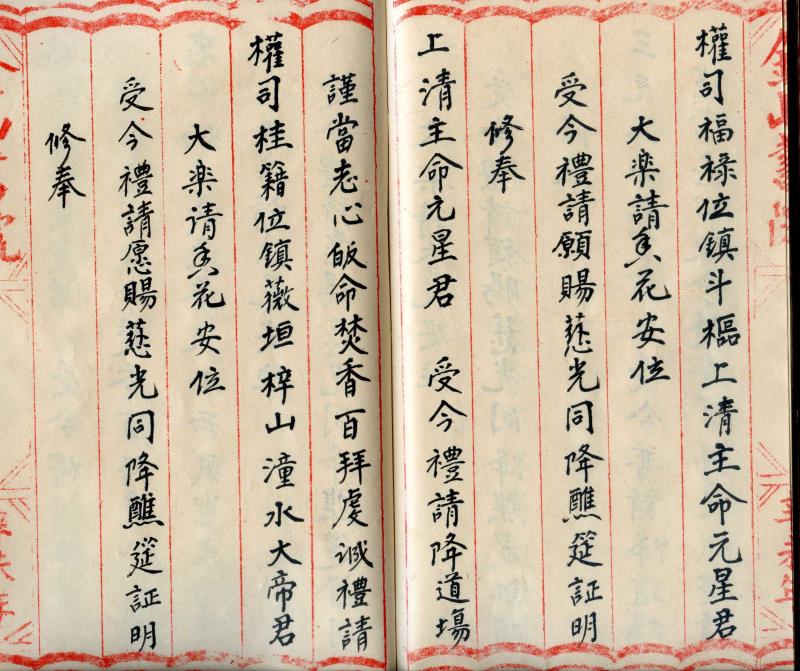 權司福祿位鎮斗樞上清主命元星君
大楽請香花安位
受今禮請願賜慈光同降醮筵証明
修奉
上清主命元星君 受今禮請降道場
謹當志心皈命焚香百拜虔诚禮請
權司桂籍位鎮薇垣梓山潼水大帝君
大楽请香花安位
受今禮請愿賜慈光同降醮筵証明
修奉